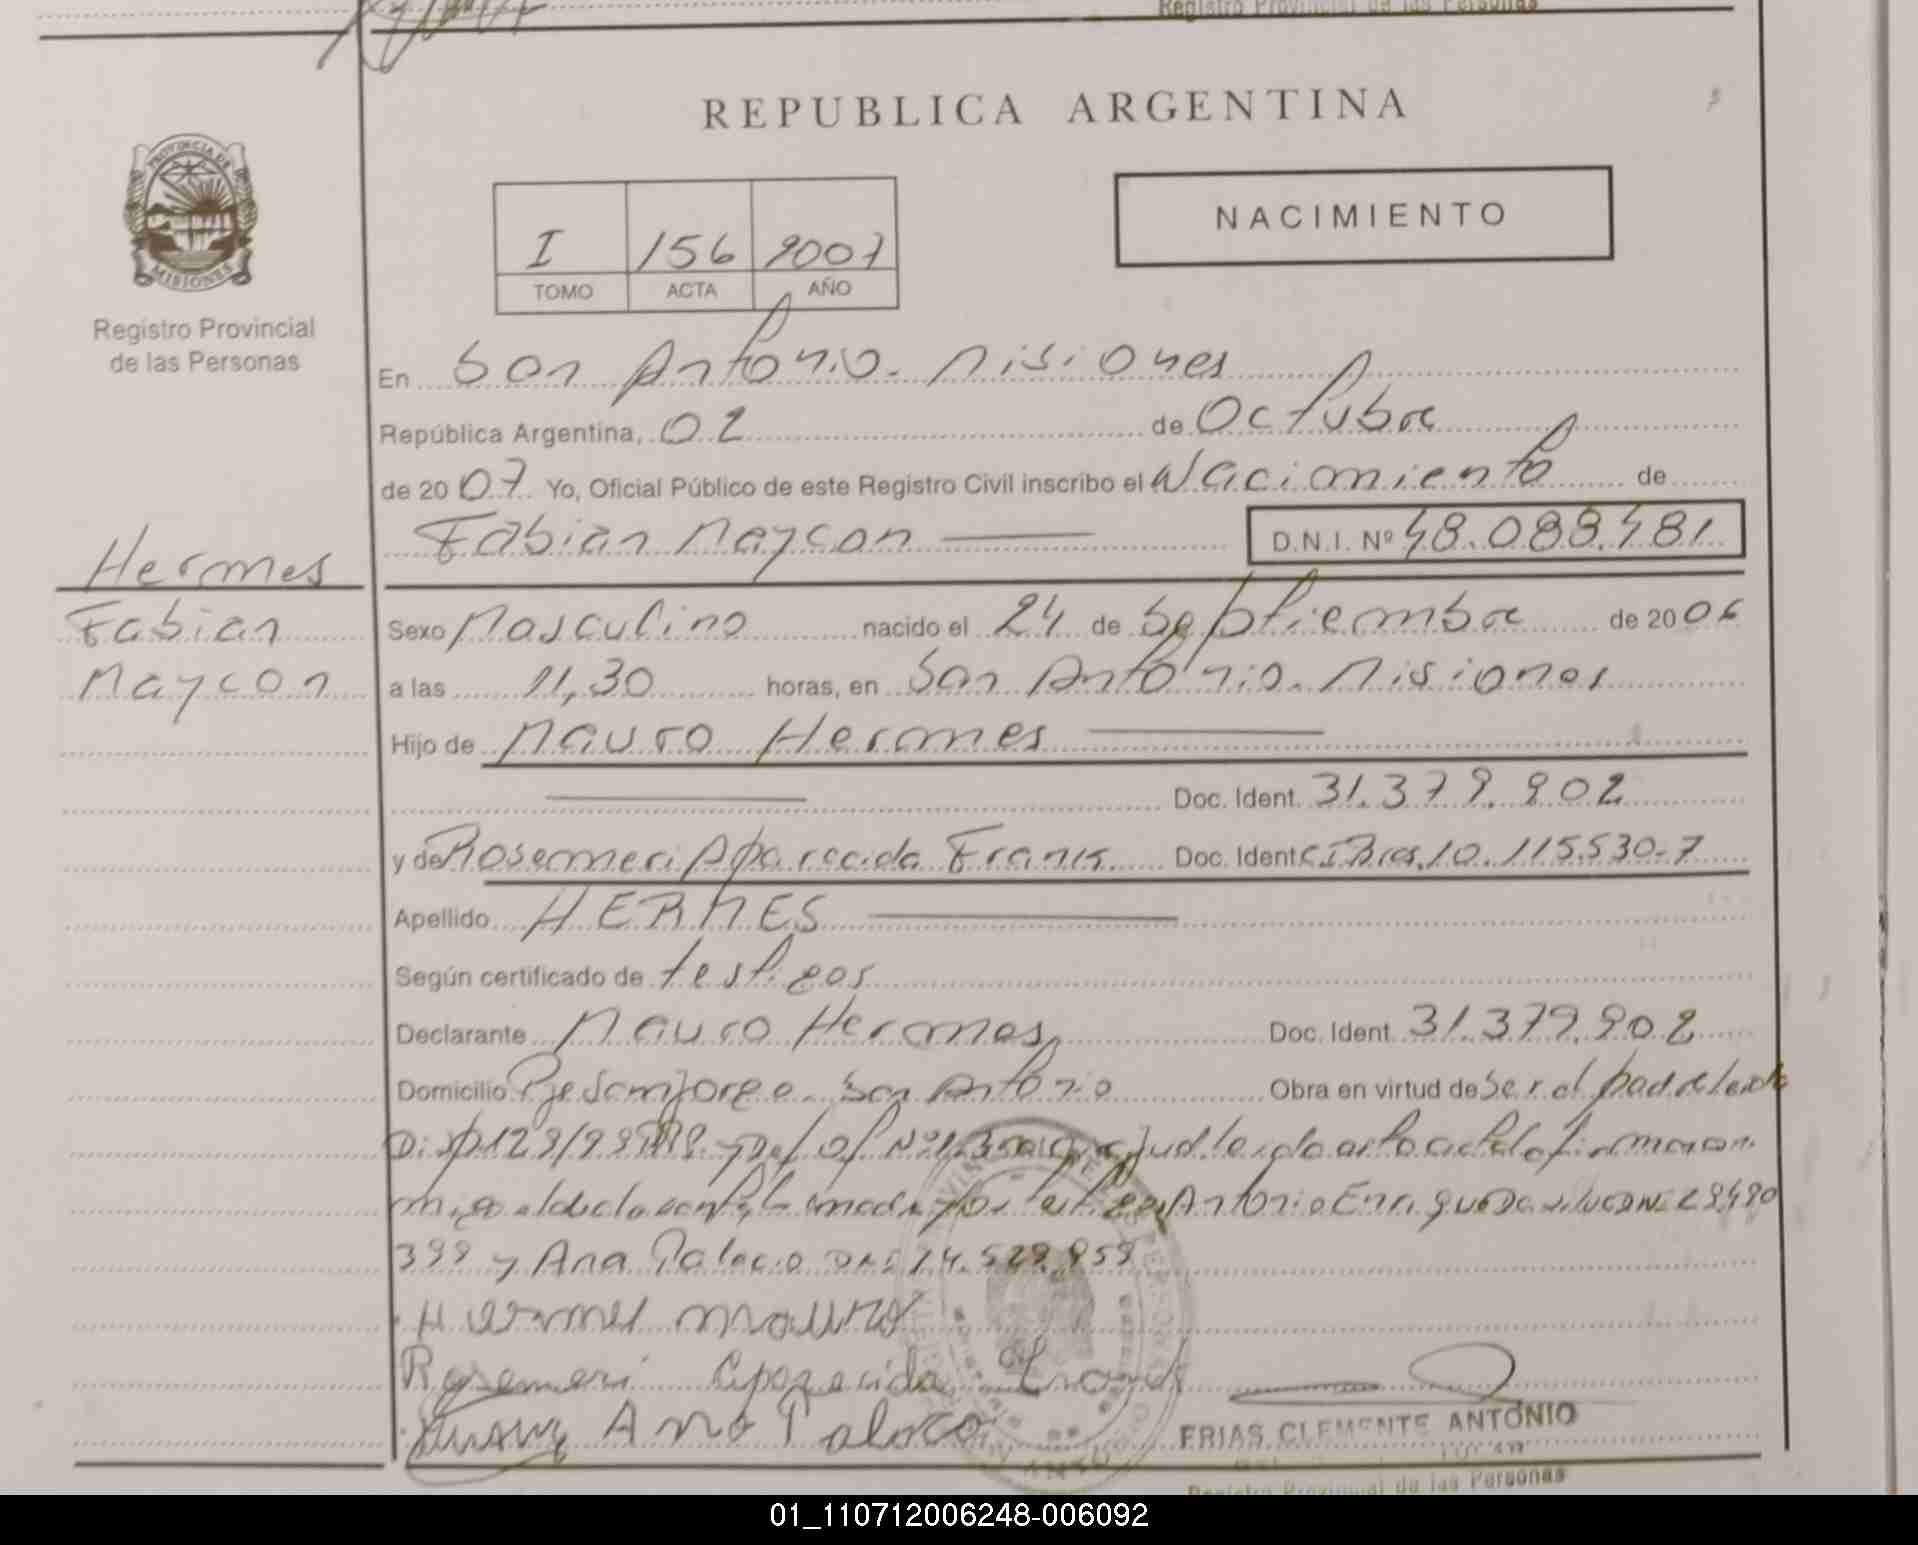 Registro Provincial de las Personas
REPUBLICA ARGENTINA
PROVINCIA DE
MISIONES
Registro Provincial
de las Personas
I 156 2007
TOMO ACTA AÑO
NACIMIENTO
En San Antonio. Misiones
República Argentina, 02 de Octubre
de 2007 Yo, Oficial Público de este Registro Civil inscribo el Nacimiento de
Fabian Maycon D.N.I. Nº 48.088.481
Hermes
Fabian
Maycon
Sexo Masculino nacido el 24 de Septiembre de 2006
a las 11,30 horas, en San Antonio. Misiones
Hijo de Mauro Hermes
Doc. Ident. 31.379.902
y de Rosemeri Aparecida Doc. Ident. 10.115.530-7
Apellido HERMES
Según certificado de testigos
Declarante Mauro Hermes Doc. Ident. 31.379.902
Domicilio San Jorge. San Antonio Obra en virtud de ser el padre
Disp 129/99
Antonio Enrique Da Silva DNI 29490
399 y Ana Palacio DNI 14.529.959
Hermes Mauro
Rosemeri Aparecida
Ana Palacio
FRIAS CLEMENTE ANTONIO
Registro Provincial de las Personas
01_110712006248-006092